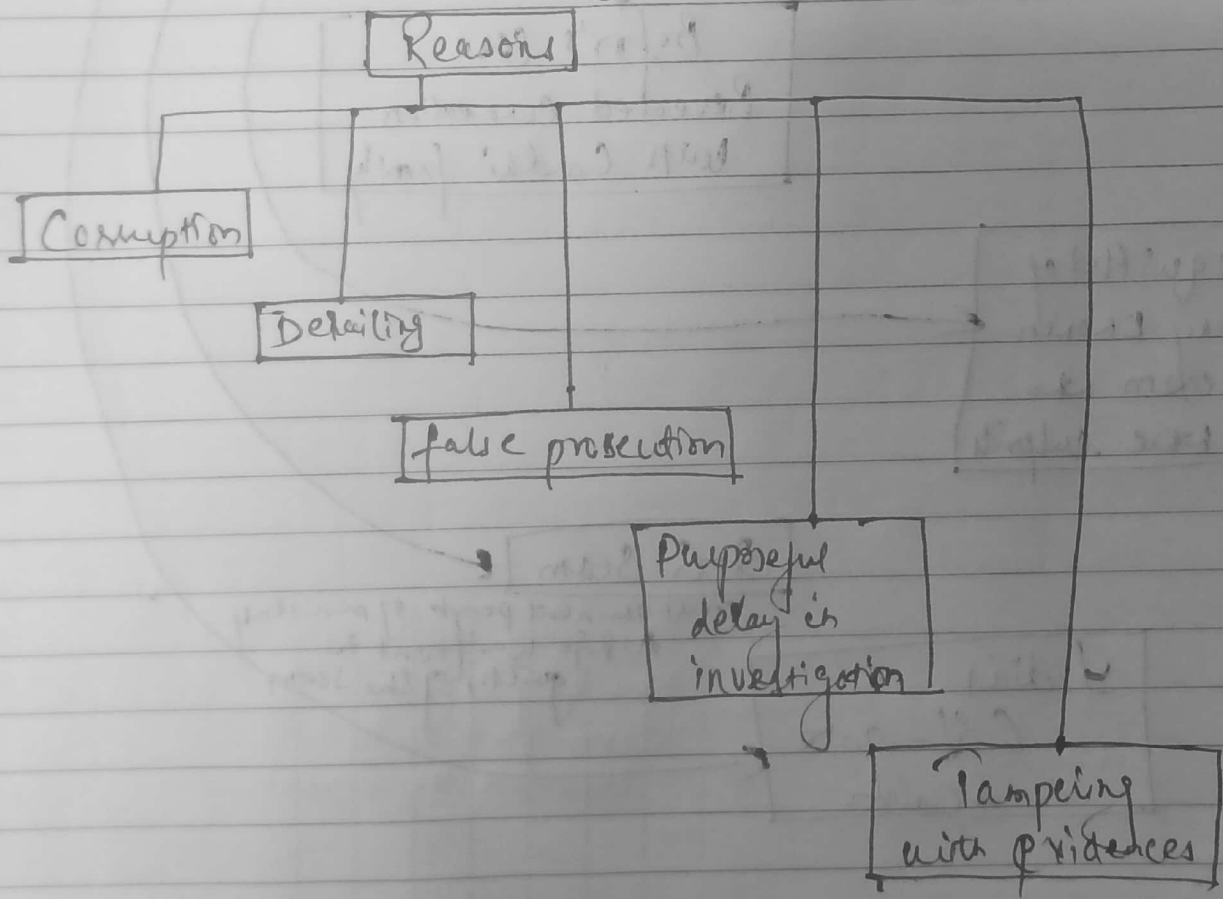 Reasons
Corruption
Derailing
false prosecution
Purposeful
delay in
investigation
Tampering
with evidences